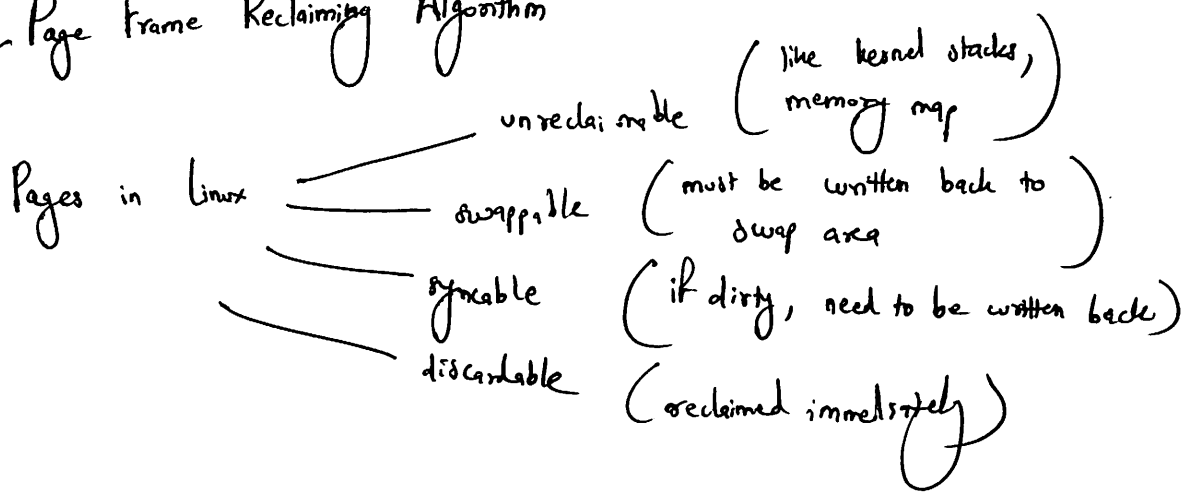 Page Frame Reclaiming Algorithm
Pages in Linux
unreclaimable (like kernel stacks,
memory map)
swappable (must be written back to
swap area)
syncable (if dirty, need to be written back)
discardable (reclaimed immediately)